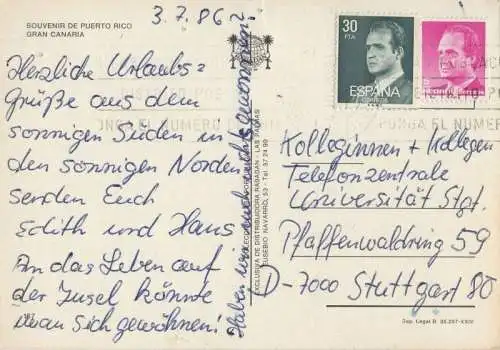 SOUVENIR DE PUERTO RICO
GRAN CANARIA
3.7.86
Herzliche Urlaubs=
grüße aus dem
sonnigen Süden in
den sonnigen Norden
senden Euch
Edith und Hans
An das Leben auf
der Insel könnte
man sich gewöhnen!
Haben wir uns vorgenommen!
EXCLUSIVA DE DISTRIBUIDORA RABASAN - LAS PALMAS
EUSEBIO NAVARRO, 53 - Tel.
30
PTA
ESPAÑA
PONGA EL NUMERO
Kolleginnen + Kollegen
Telefonzentrale
Universität Stgt.
Pfaffenwaldring 59
D-7000 Stuttgart 80
Dep. Legal B.